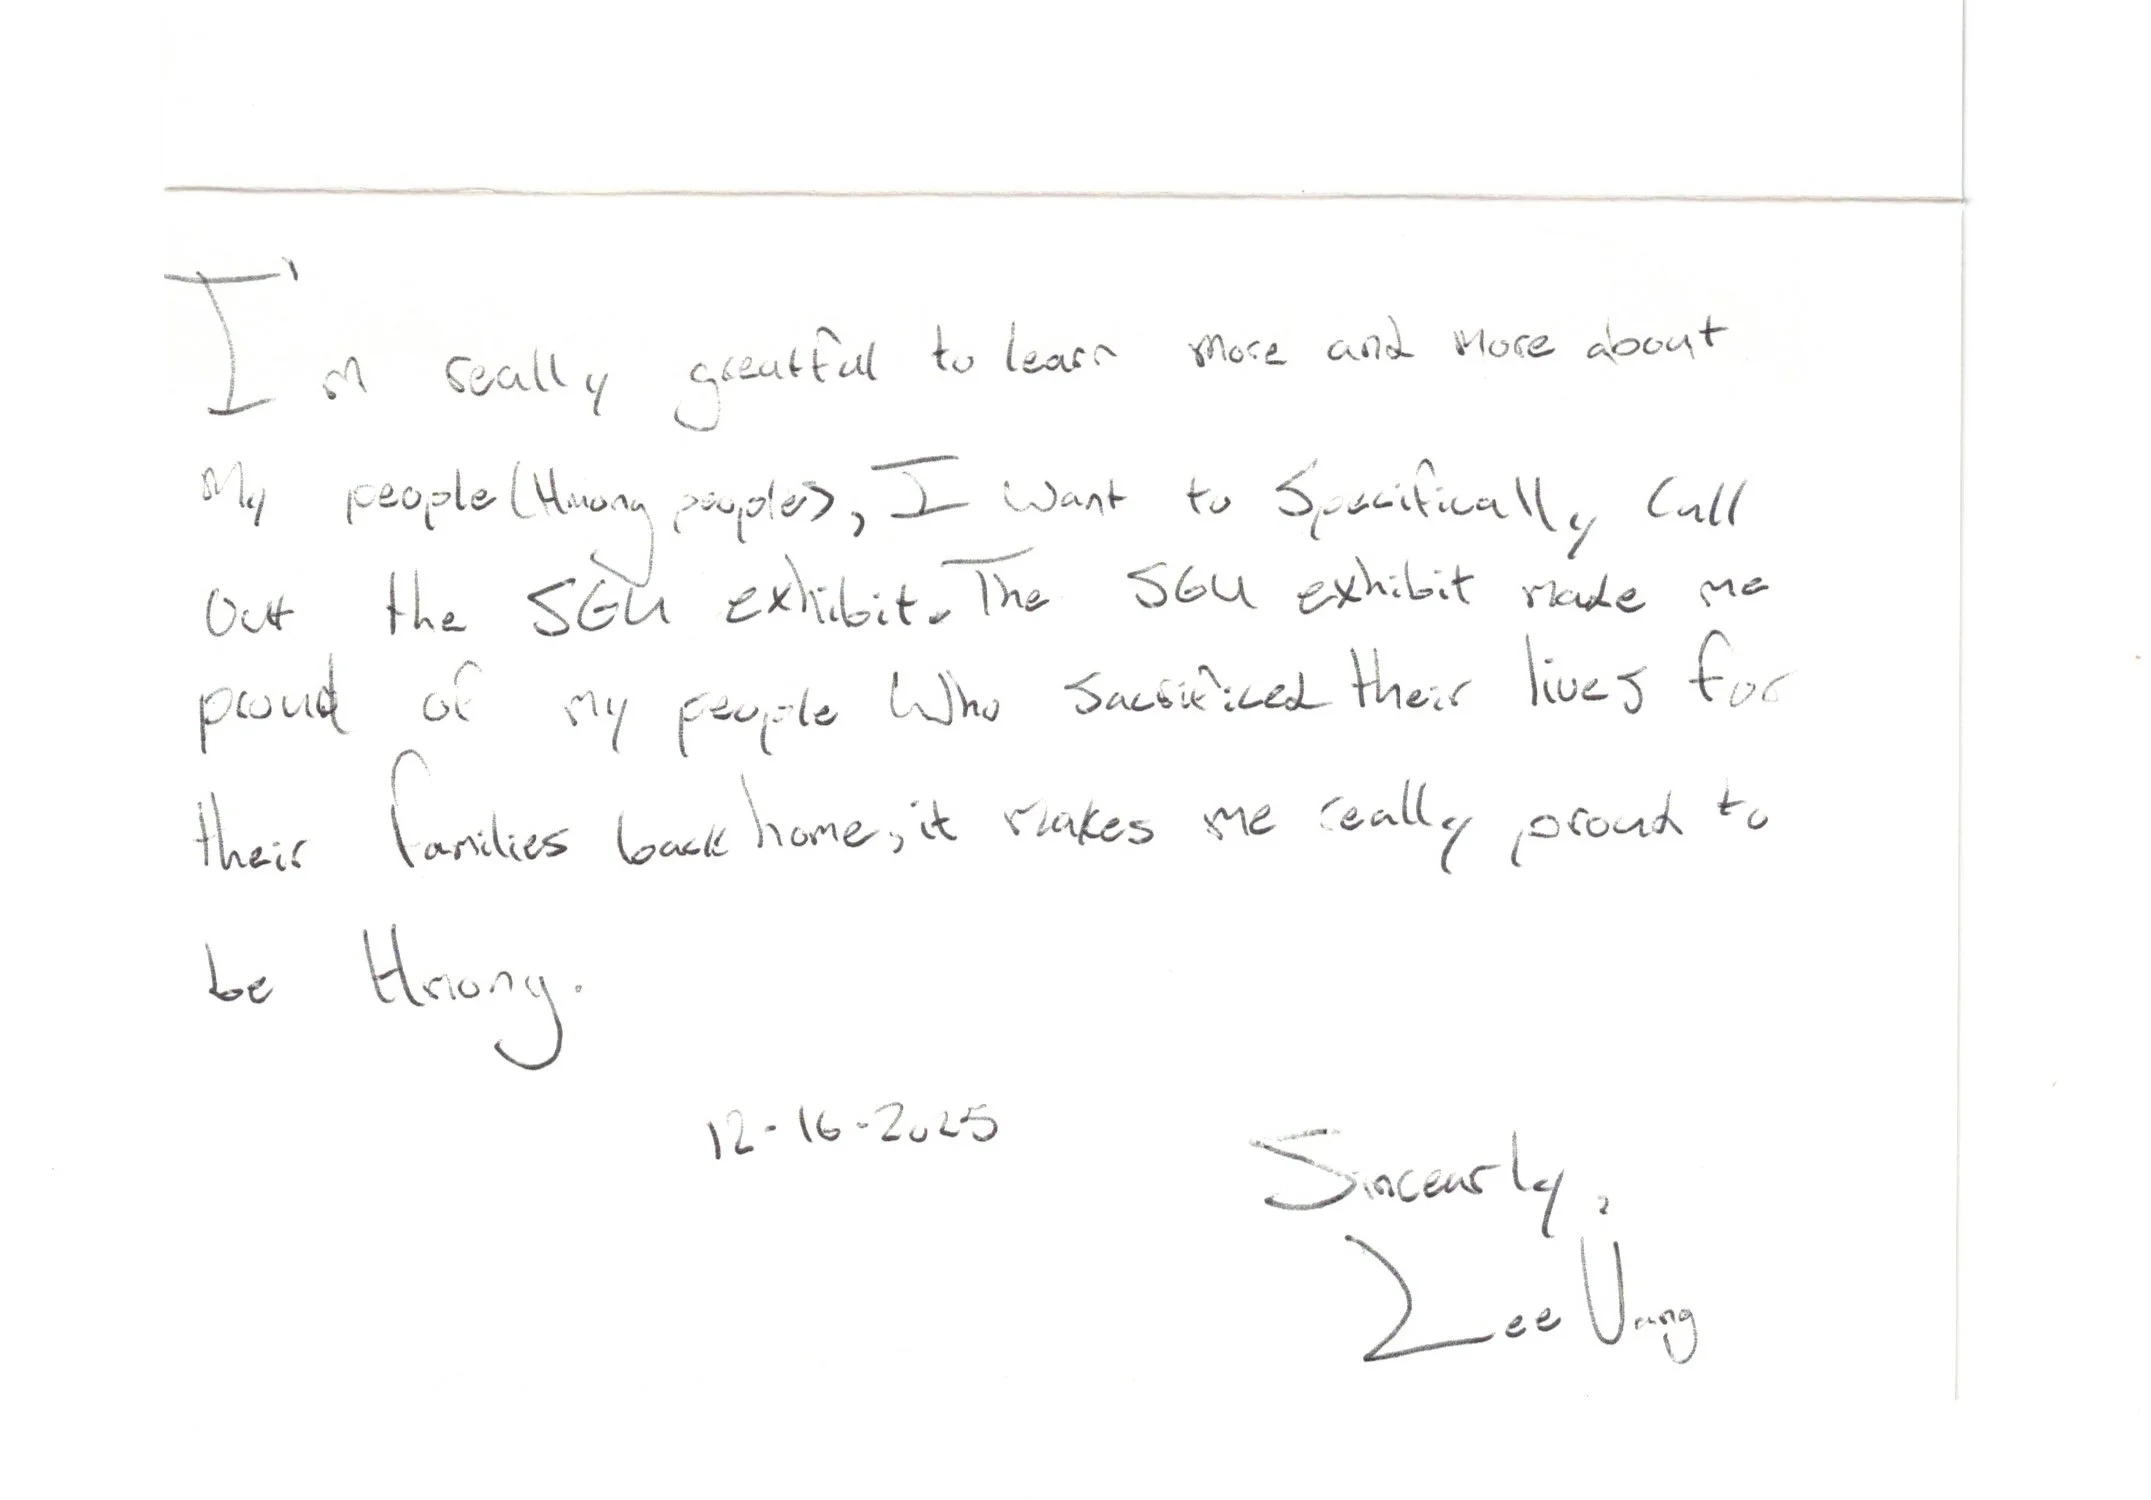 I'm really greatful to learn more and more about
My people (Hmong peoples), I want to Specifically Call
Out the SGU exhibit. The SGU exhibit made me
proud of my people Who sacrificed their lives for
their families back home, it makes me really proud to
be Hmong.
12-16-2025
Sincearly,
Lee Vang